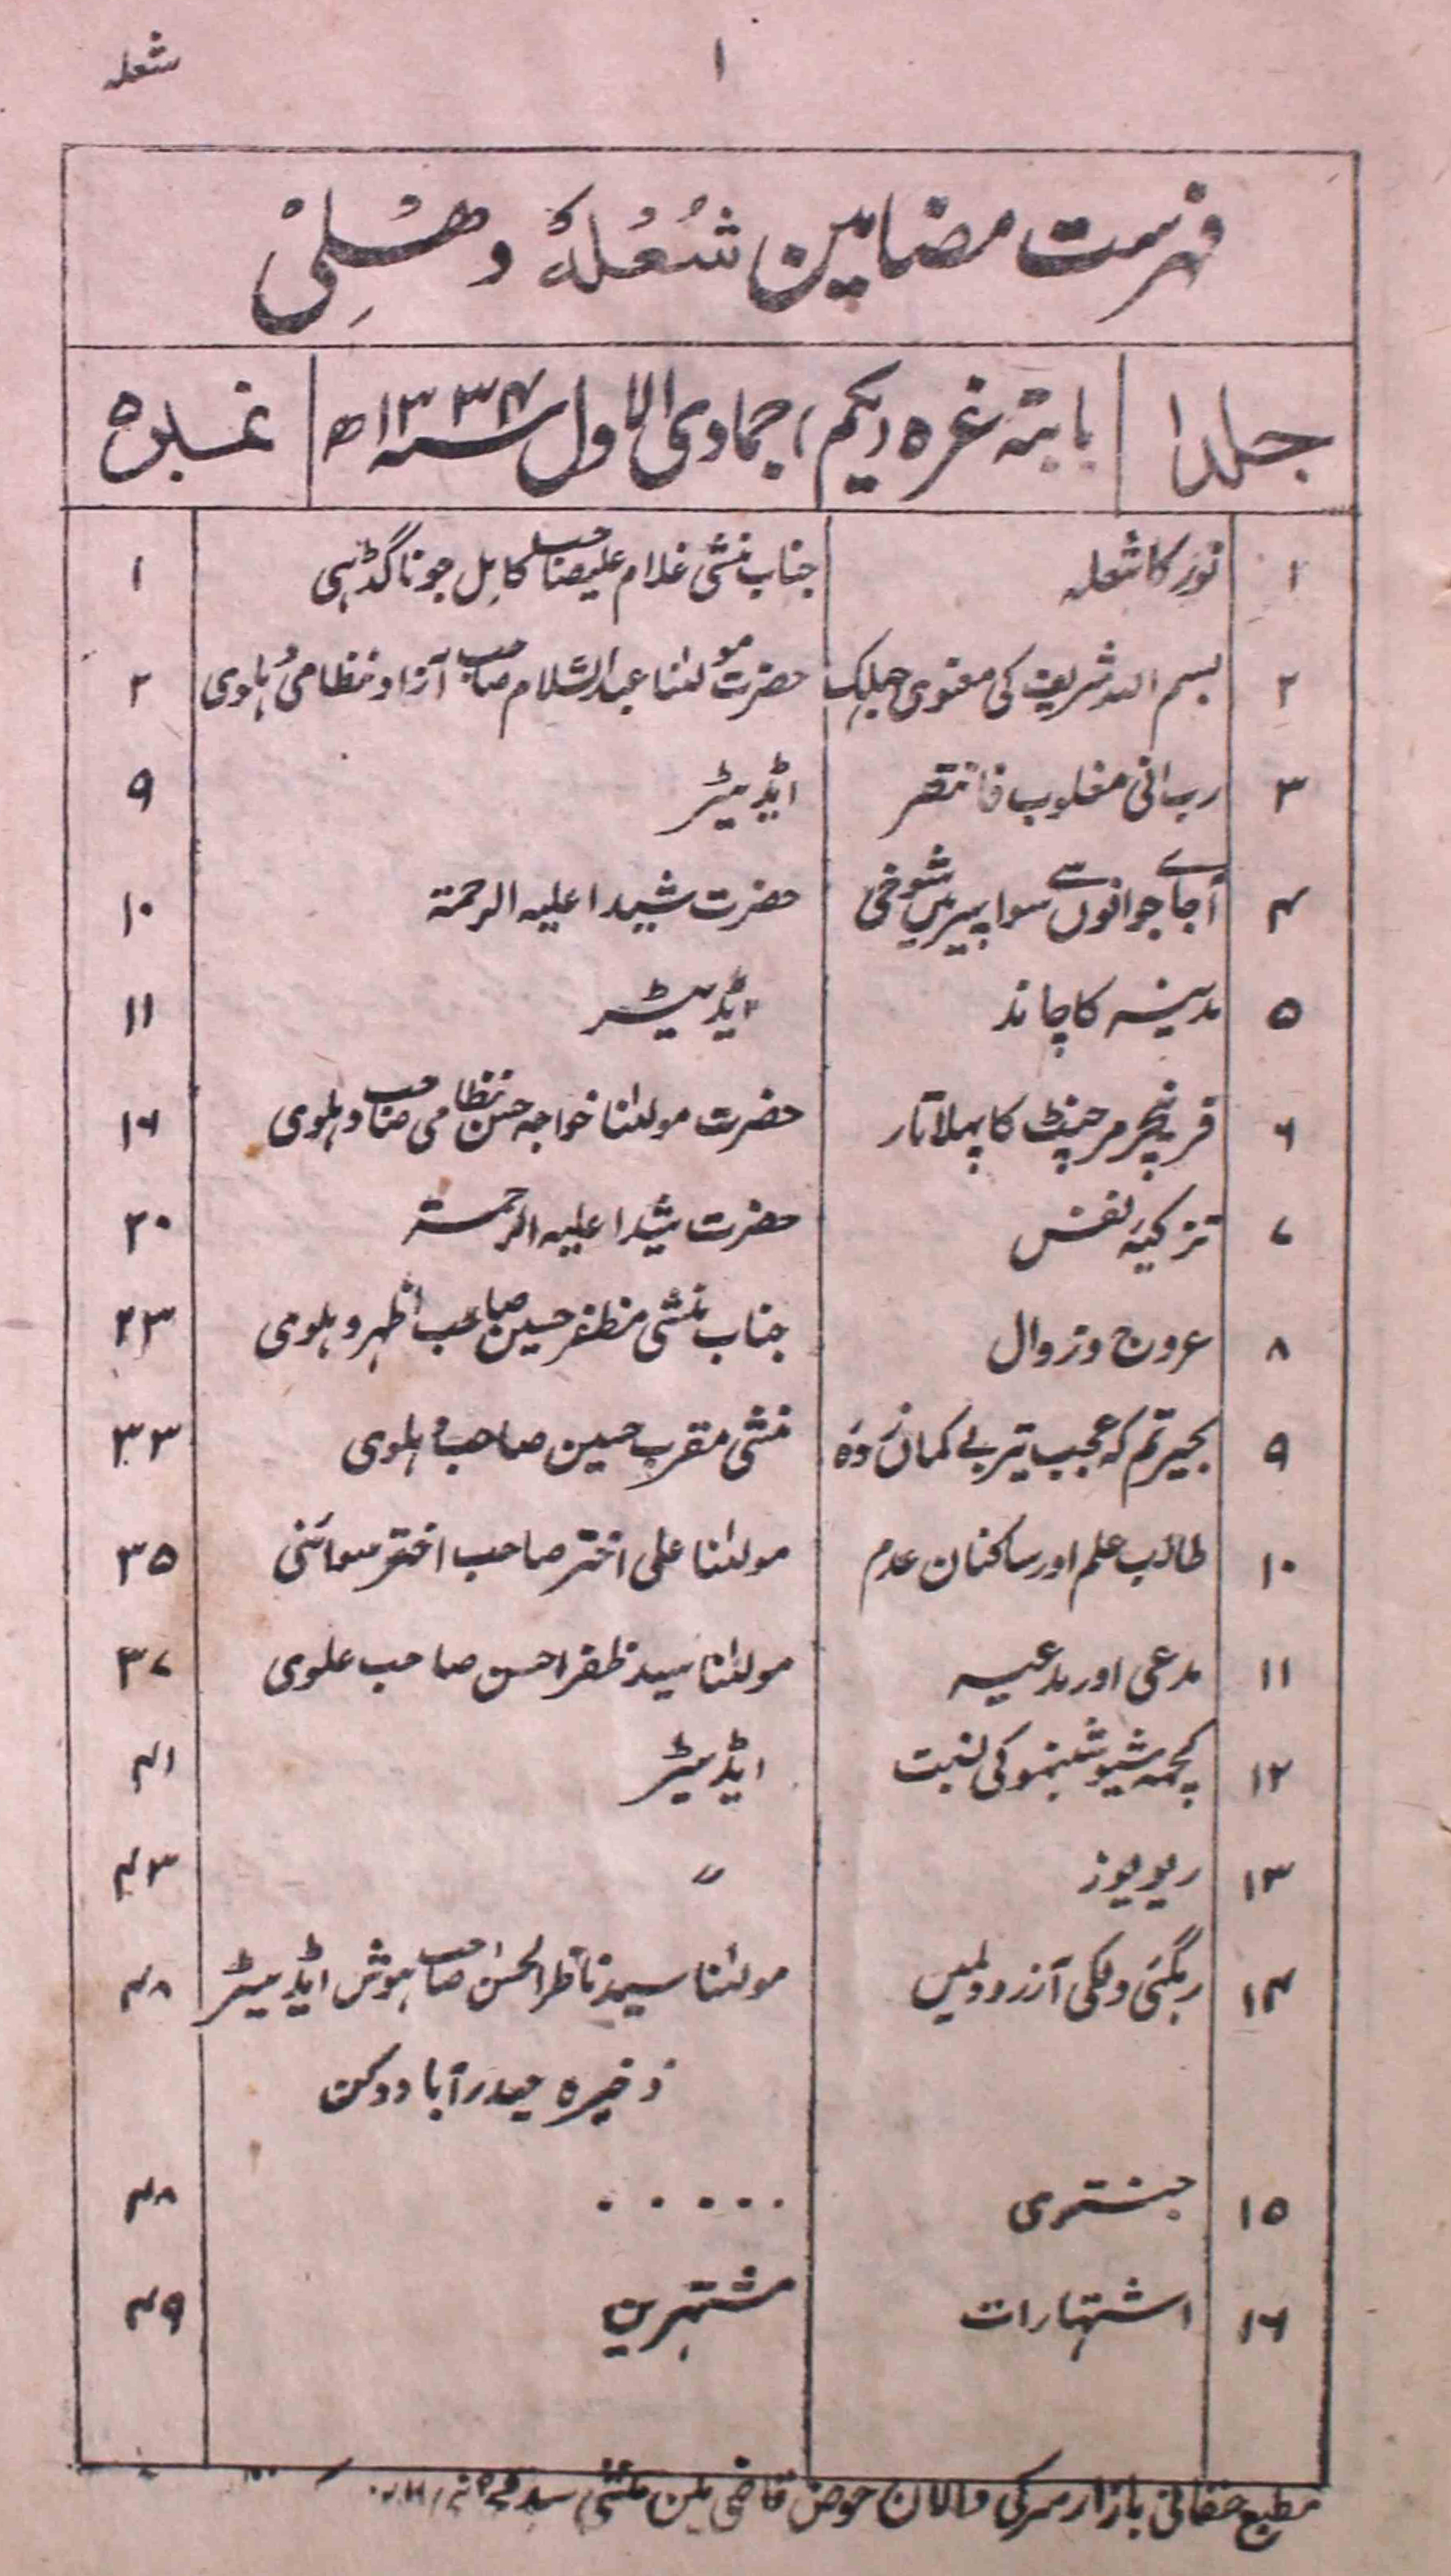 شعلہ ۱
فہرست مضامین شُعُلۂ دھلی
جلد ۱ بابتہ غرہ (یکم) جمادی الاول سنہ ۱۳۳۴ھ نمبر ۵
۱ نور کا شعلہ جناب منشی غلام علیصاحب کامل جوناگڈہی ۱
۲ بسم اللہ شریف کی معنوی جہلک حضرت مولٰنا عبدالسّلام صاحب آزاد نظامی دہلوی ۲
۳ رب انی مغلوب فانتصر ایڈیٹر ۹
۴ آجائے جوانوں سے سوا پیر میں شوخی حضرت شیدا علیہ الرحمۃ ۱۰
۵ مدینہ کا چاند ایڈیٹر ۱۱
۶ فرنیچر مرچنٹ کا پہلا تار حضرت مولٰنا خواجہ حسن نظامی صاحب دہلوی ۱۶
۷ تزکیۂ نفس حضرت شیدا علیہ الرحمۃ ۲۰
۸ عروج و زوال جناب منشی مظفر حسین صاحب اظہر دہلوی ۲۳
۹ بحیرتم کہ عجب تیر بے کمان زدۂ منشی مقرب حسین صاحب دہلوی ۳۳
۱۰ طالب علم اور ساکنان عدم مولٰنا علی اختر صاحب اختر ۳۵
۱۱ مدعی اور مدعیہ مولٰنا سید ظفر احسن صاحب علوی ۳۷
۱۲ کچہہ شیو شنبہو کی نسبت ایڈیٹر ۴۱
۱۳ ریویوز ״ ۴۳
۱۴ رہگئی دلکی آرزو دلمیں مولٰنا سید ناظر الحسن صاحب ہوش ایڈیٹر ۴۸
ذخیرہ حیدرآباد دکن
۱۵ جنتری ..... ۴۸
۱۶ اشتہارات مشتہرین ۴۹
مطبع حقانی بازار سرکی والان حوض قاضی میں منشی سید